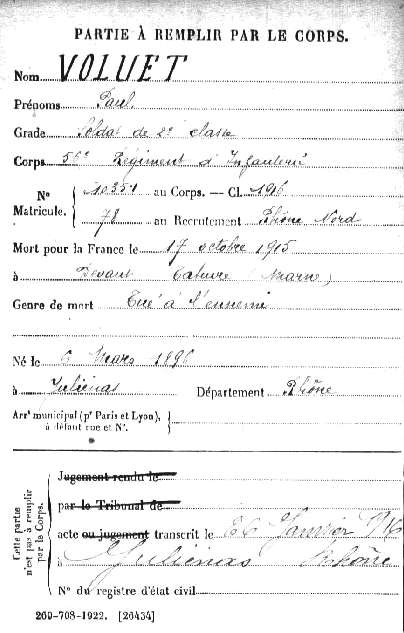 PARTIE À REMPLIR PAR LE CORPS.
Nom VOLUET
Prénoms Paul
Grade Soldat de 2e classe
Corps 56e Régiment d'Infanterie
N° Matricule. 10351 au Corps. — Cl. 1916
78 au Recrutement Rhône Nord
Mort pour la France le 17 octobre 1915
à Devant Tahure (Marne)
Genre de mort Tué à l'ennemi
Né le 6 Mars 1896
à Juliénas Département Rhône
Arrt municipal (pr Paris et Lyon), à défaut rue et N°.
Cette partie n'est pas à remplir par le Corps.
Jugement rendu le
par le Tribunal de
acte ou jugement transcrit le 26 Janvier 1916
à Juliénas Rhône
N° du registre d'état civil
269-708-1922. [26434]